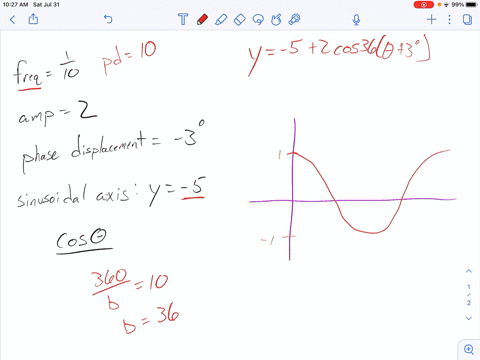 10:27 AM Sat Jul 31
99%
freq = 1/10 pd = 10
y = -5 + 2 cos 36(θ + 3°)
amp = 2
phase displacement = -3°
sinusoidal axis: y = -5
cos θ
360/b = 10
b = 36
1
-1
1
2